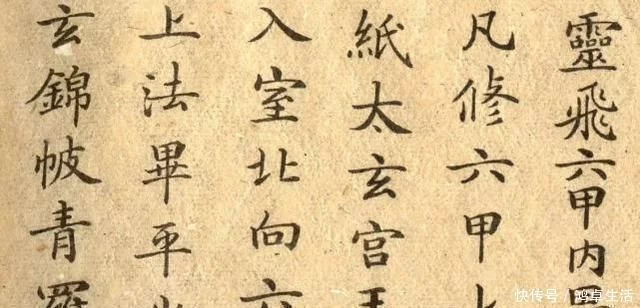 靈飛六甲内
凡修六甲上
紙太玄宫玉
入室北向六
上法畢平
玄錦帔青羅
快传号/鸿卓生活